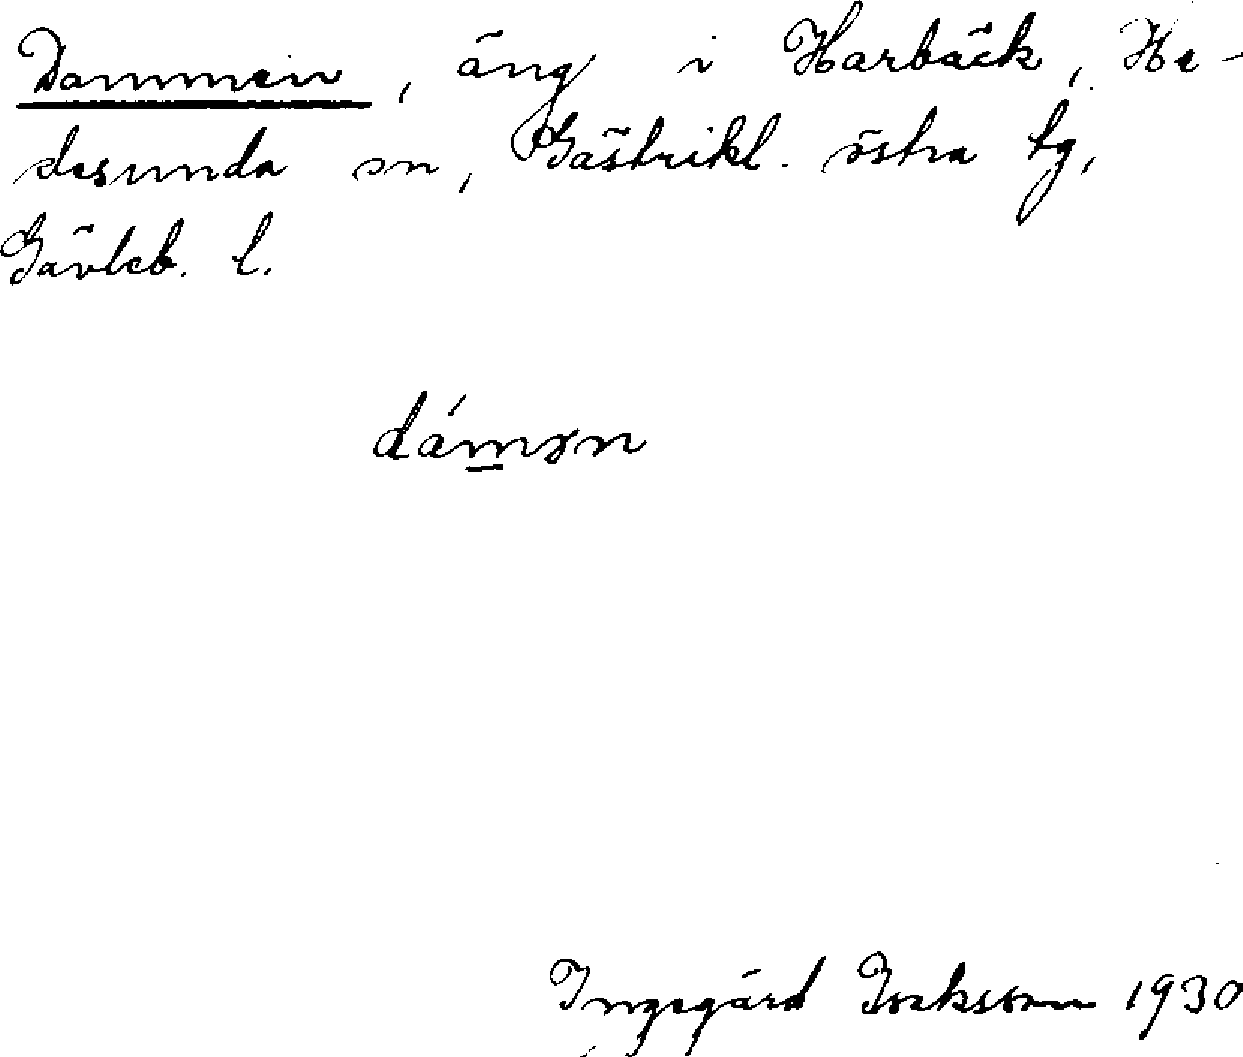 Dammen, äng i Harbäck, He-
desunda sn, Gästrikl. östra tg,
Gävleb. l.
dámən
Ingegärd 1930